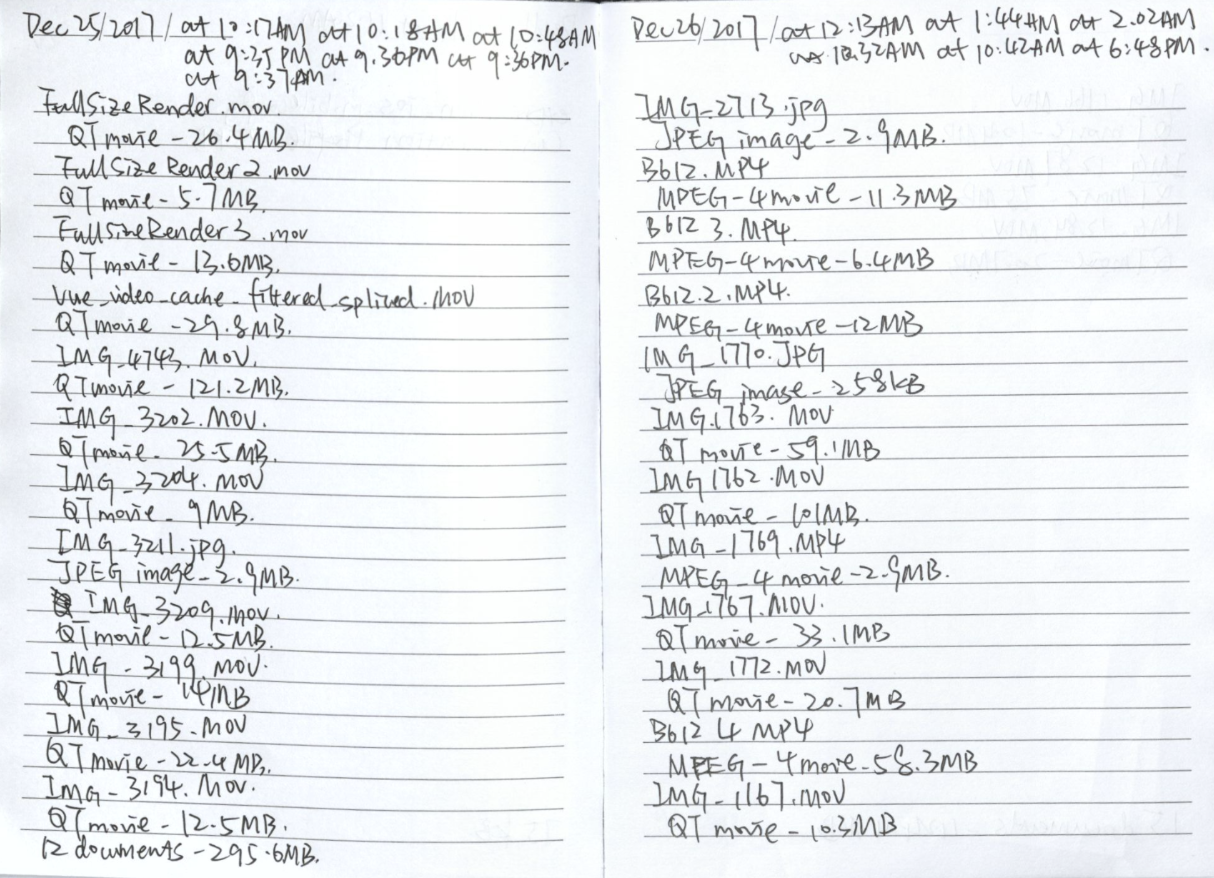 Dec 25/2017 / at 10:17AM at 10:18AM at 10:48AM
at 9:35PM at 9.36PM at 9:36PM.
at 9:37PM.
FullSizeRender.mov
QT movie - 26.4MB.
FullSize Render 2.mov
QT movie - 5.7MB.
FullSizeRender 3.mov
QT movie - 13.6MB.
vue_video_cache_filtered_spliced.MOV
QT movie - 29.8MB.
IMG_4743.MOV.
QT movie - 121.2MB.
IMG_3202.MOV.
QT movie - 25.5MB.
IMG_3204.MOV
QT movie - 9MB.
IMG_3211.jpg.
JPEG image - 2.9MB.
IMG_3209.mov.
QT movie - 12.5MB.
IMG_3199.MOV.
QT movie - 14MB
IMG_3195.MOV
QT movie - 22.4MB.
IMG_3194.MOV.
QT movie - 12.5MB.
12 documents - 295.6MB.
Dec 26/2017 / at 12:13AM at 1:44AM at 2.02AM
at 10.32AM at 10:42AM at 6:48PM.
IMG_2713.jpg
JPEG image - 2.9MB.
B612.MP4
MPEG-4 movie - 11.3MB
B612 3.MP4.
MPEG-4 movie - 6.4MB
B612.2.MP4.
MPEG-4 movie - 12MB
IMG_1770.JPG
JPEG image - 258kB
IMG_1763.MOV
QT movie - 59.1MB
IMG 1762.MOV
QT movie - 101MB.
IMG_1769.MP4
MPEG-4 movie - 2.9MB.
IMG_1767.MOV.
QT movie - 33.1MB
IMG_1772.MOV
QT movie - 20.7MB
B612 4 MP4
MPEG-4 movie - 58.3MB
IMG_1167.MOV
QT movie - 10.3MB